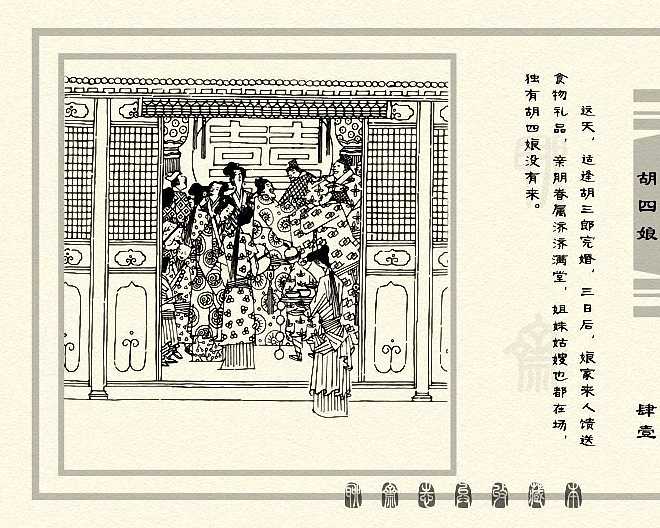 胡四娘
肆壹
这天，适逢胡三郎完婚，三日后，娘家来人馈送
食物礼品，亲朋眷属济济满堂，姐妹姑嫂也都在场，
独有胡四娘没有来。
囍